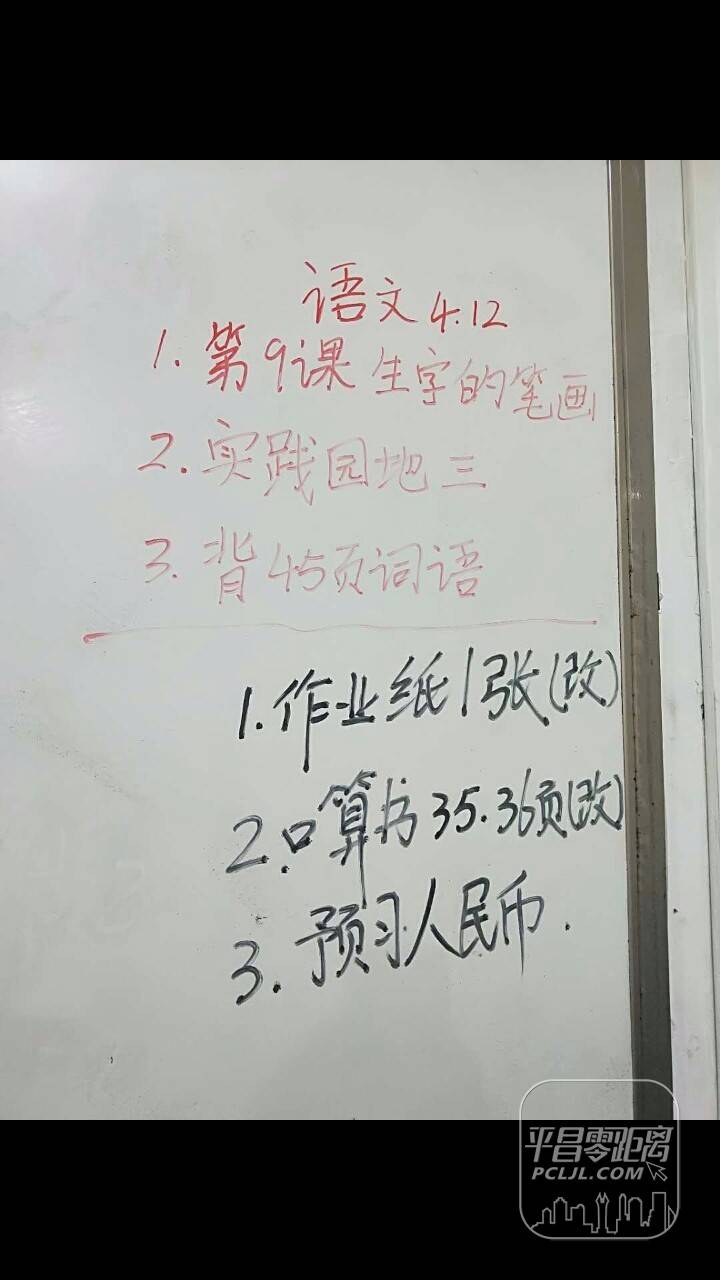 语文 4.12
1. 第9课 生字的笔画
2. 实践园地三
3. 背45页词语
1. 作业纸1张(改)
2. 口算书35.36页(改)
3. 预习人民币.
平昌零距离
PCLJL.COM